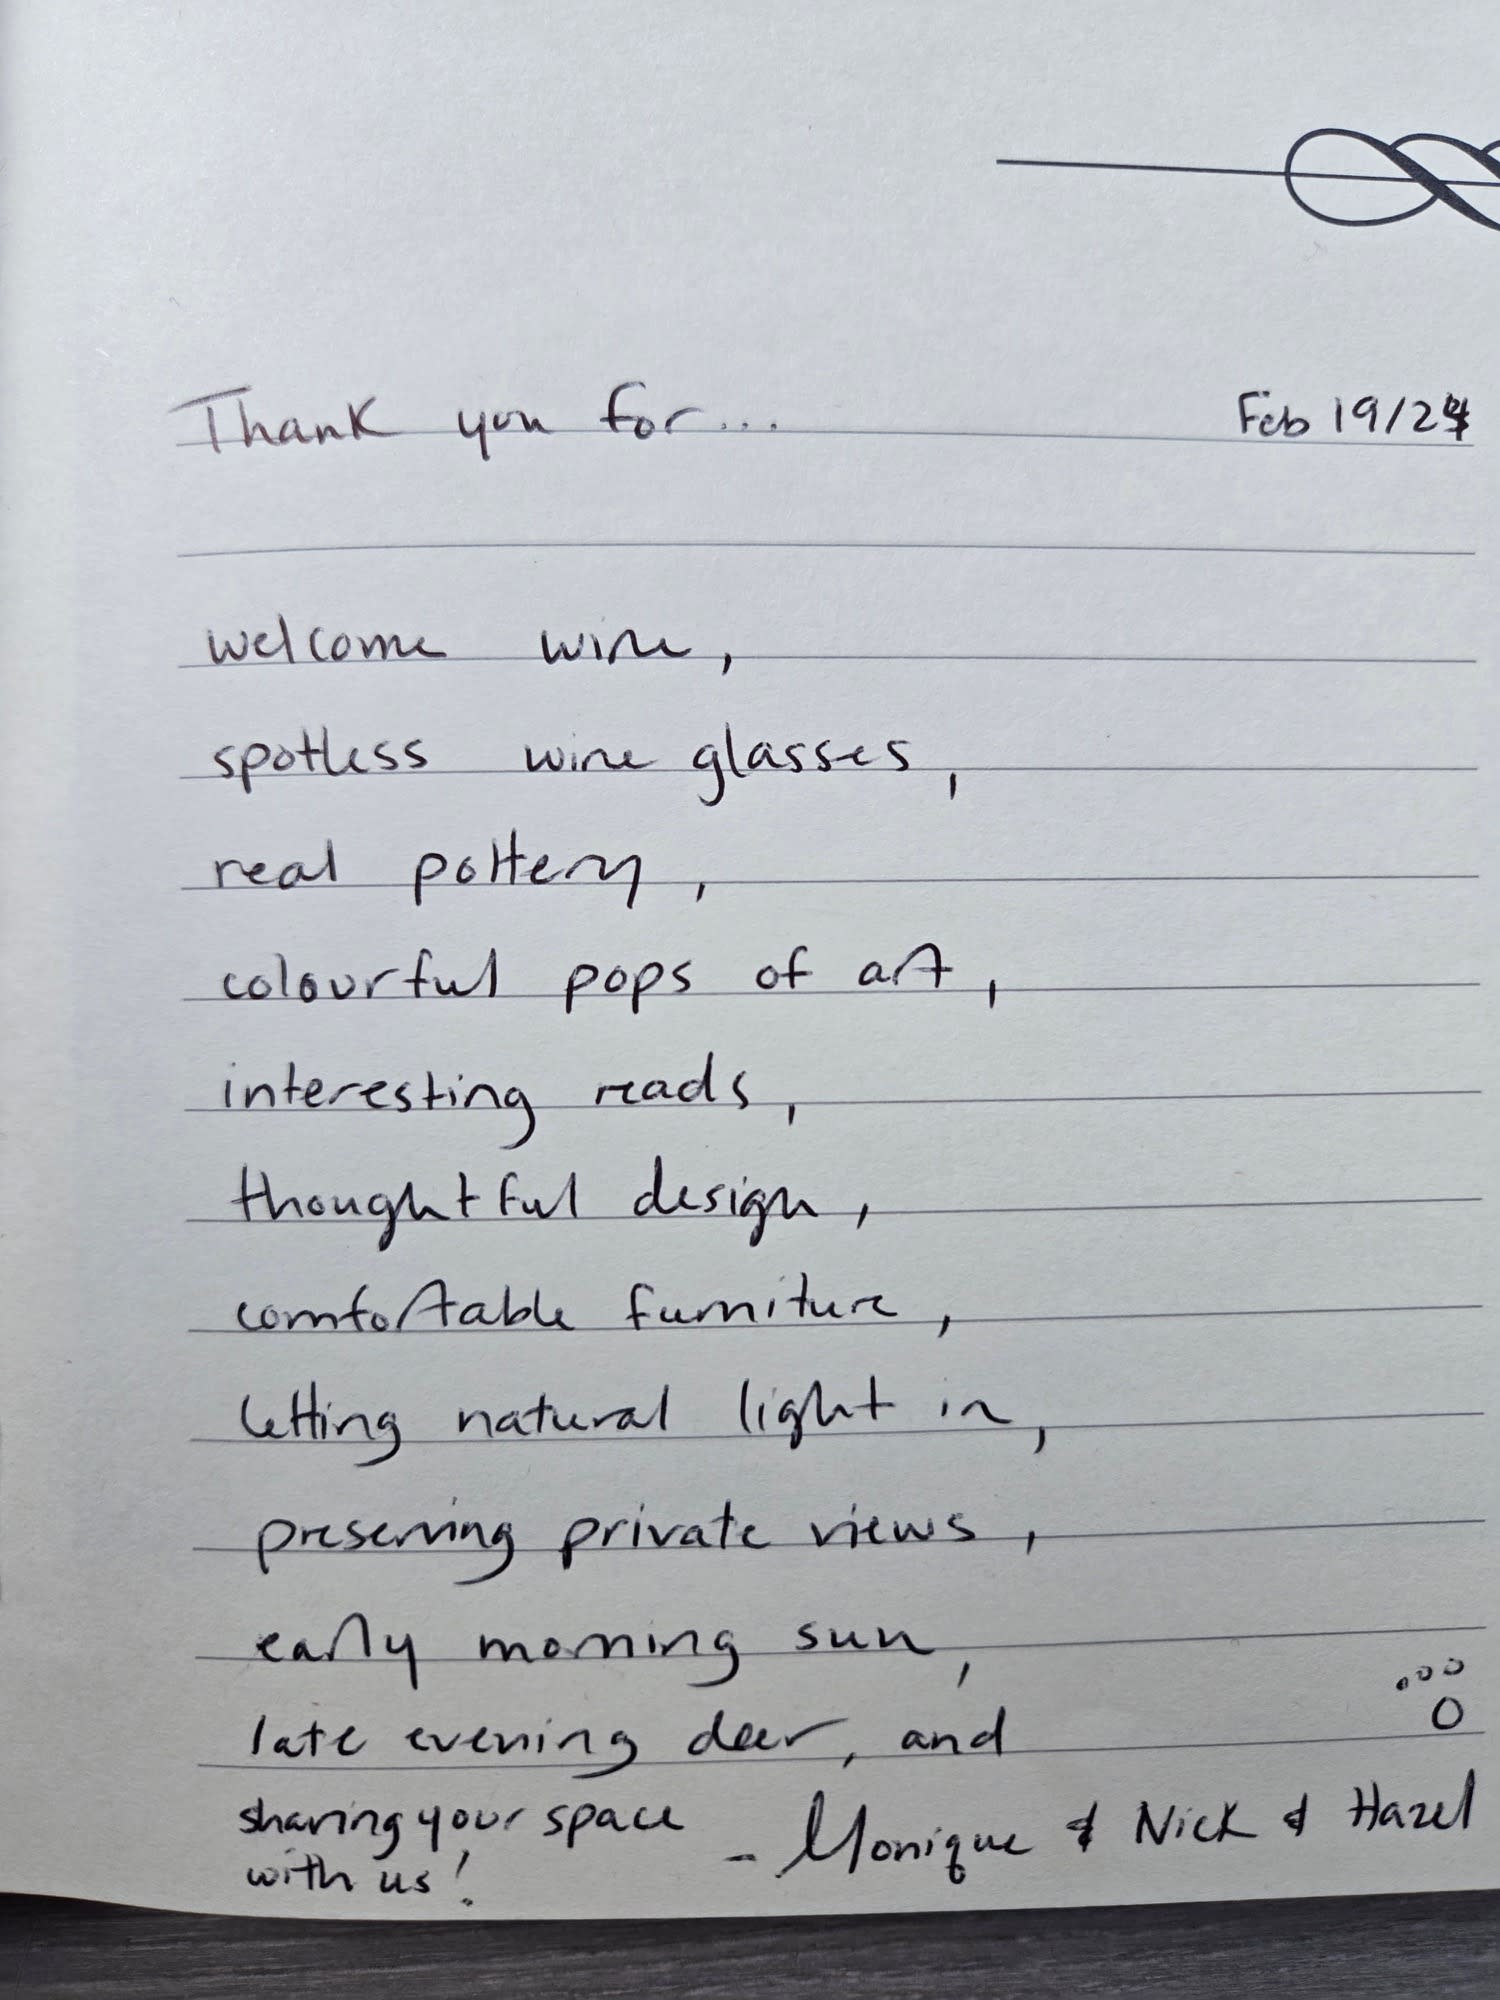 Thank you for... Feb 19/24
welcome wine,
spotless wine glasses,
real pottery,
colourful pops of art,
interesting reads,
thoughtful design,
comfortable furniture,
letting natural light in,
preserving private views,
early morning sun,
late evening deer, and
sharing your space - Monique & Nick & Hazel
with us!